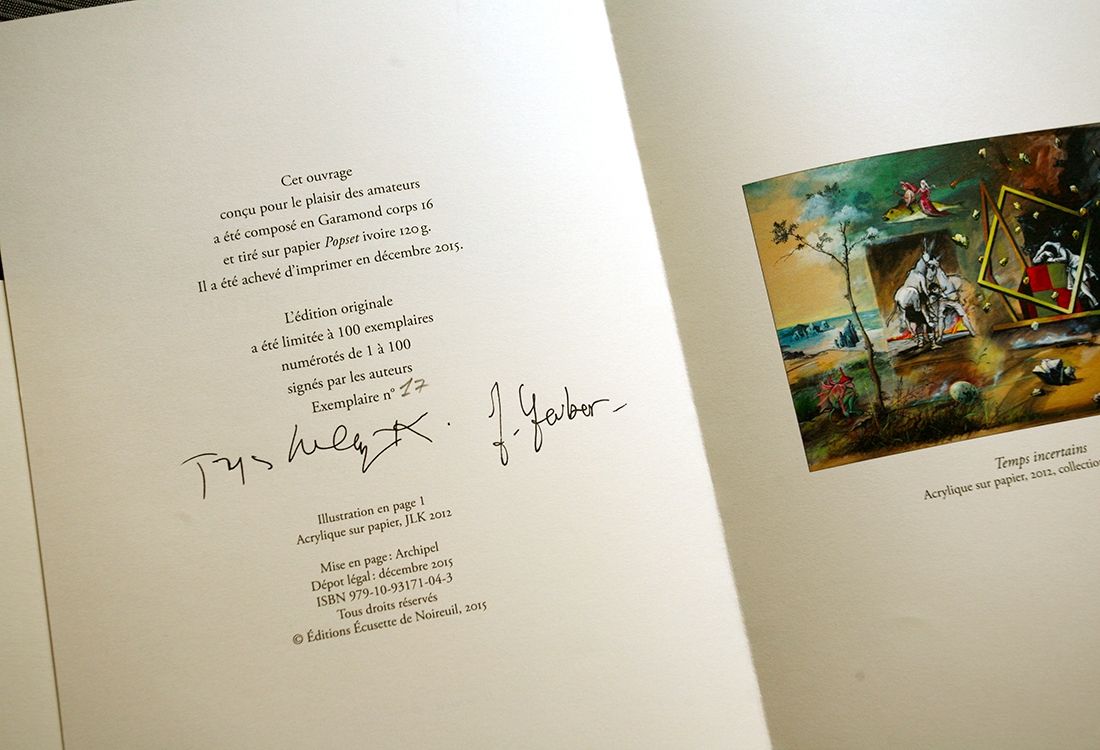 Cet ouvrage
conçu pour le plaisir des amateurs
a été composé en Garamond corps 16
et tiré sur papier Popset ivoire 120 g.
Il a été achevé d’imprimer en décembre 2015.
L’édition originale
a été limitée à 100 exemplaires
numérotés de 1 à 100
signés par les auteurs
Exemplaire n° 17
Illustration en page 1
Acrylique sur papier, JLK 2012
Mise en page : Archipel
Dépot légal : décembre 2015
ISBN 979-10-93171-04-3
Tous droits réservés
© Éditions Écusette de Noireuil, 2015
Temps incertains
Acrylique sur papier, 2012, collection